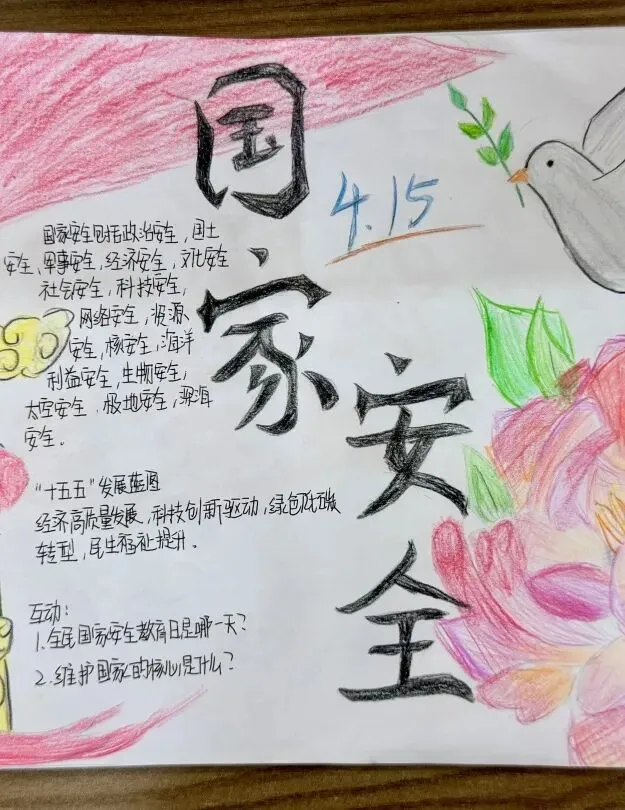 国家安全
4.15
国家安全包括政治安全,国土
安全、军事安全,经济安全,文化安全
社会安全,科技安全,
网络安全,资源
安全,核安全,海洋
利益安全,生物安全,
太空安全、极地安全,深海
安全。
“十五五”发展蓝图
经济高质量发展,科技创新驱动,绿色低碳
转型,民生福祉提升.
互动:
1.全民国家安全教育日是哪一天?
2.维护国家的核心是什么?